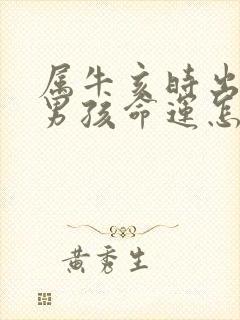 属牛亥时出
男孩命运怎
黄秀生